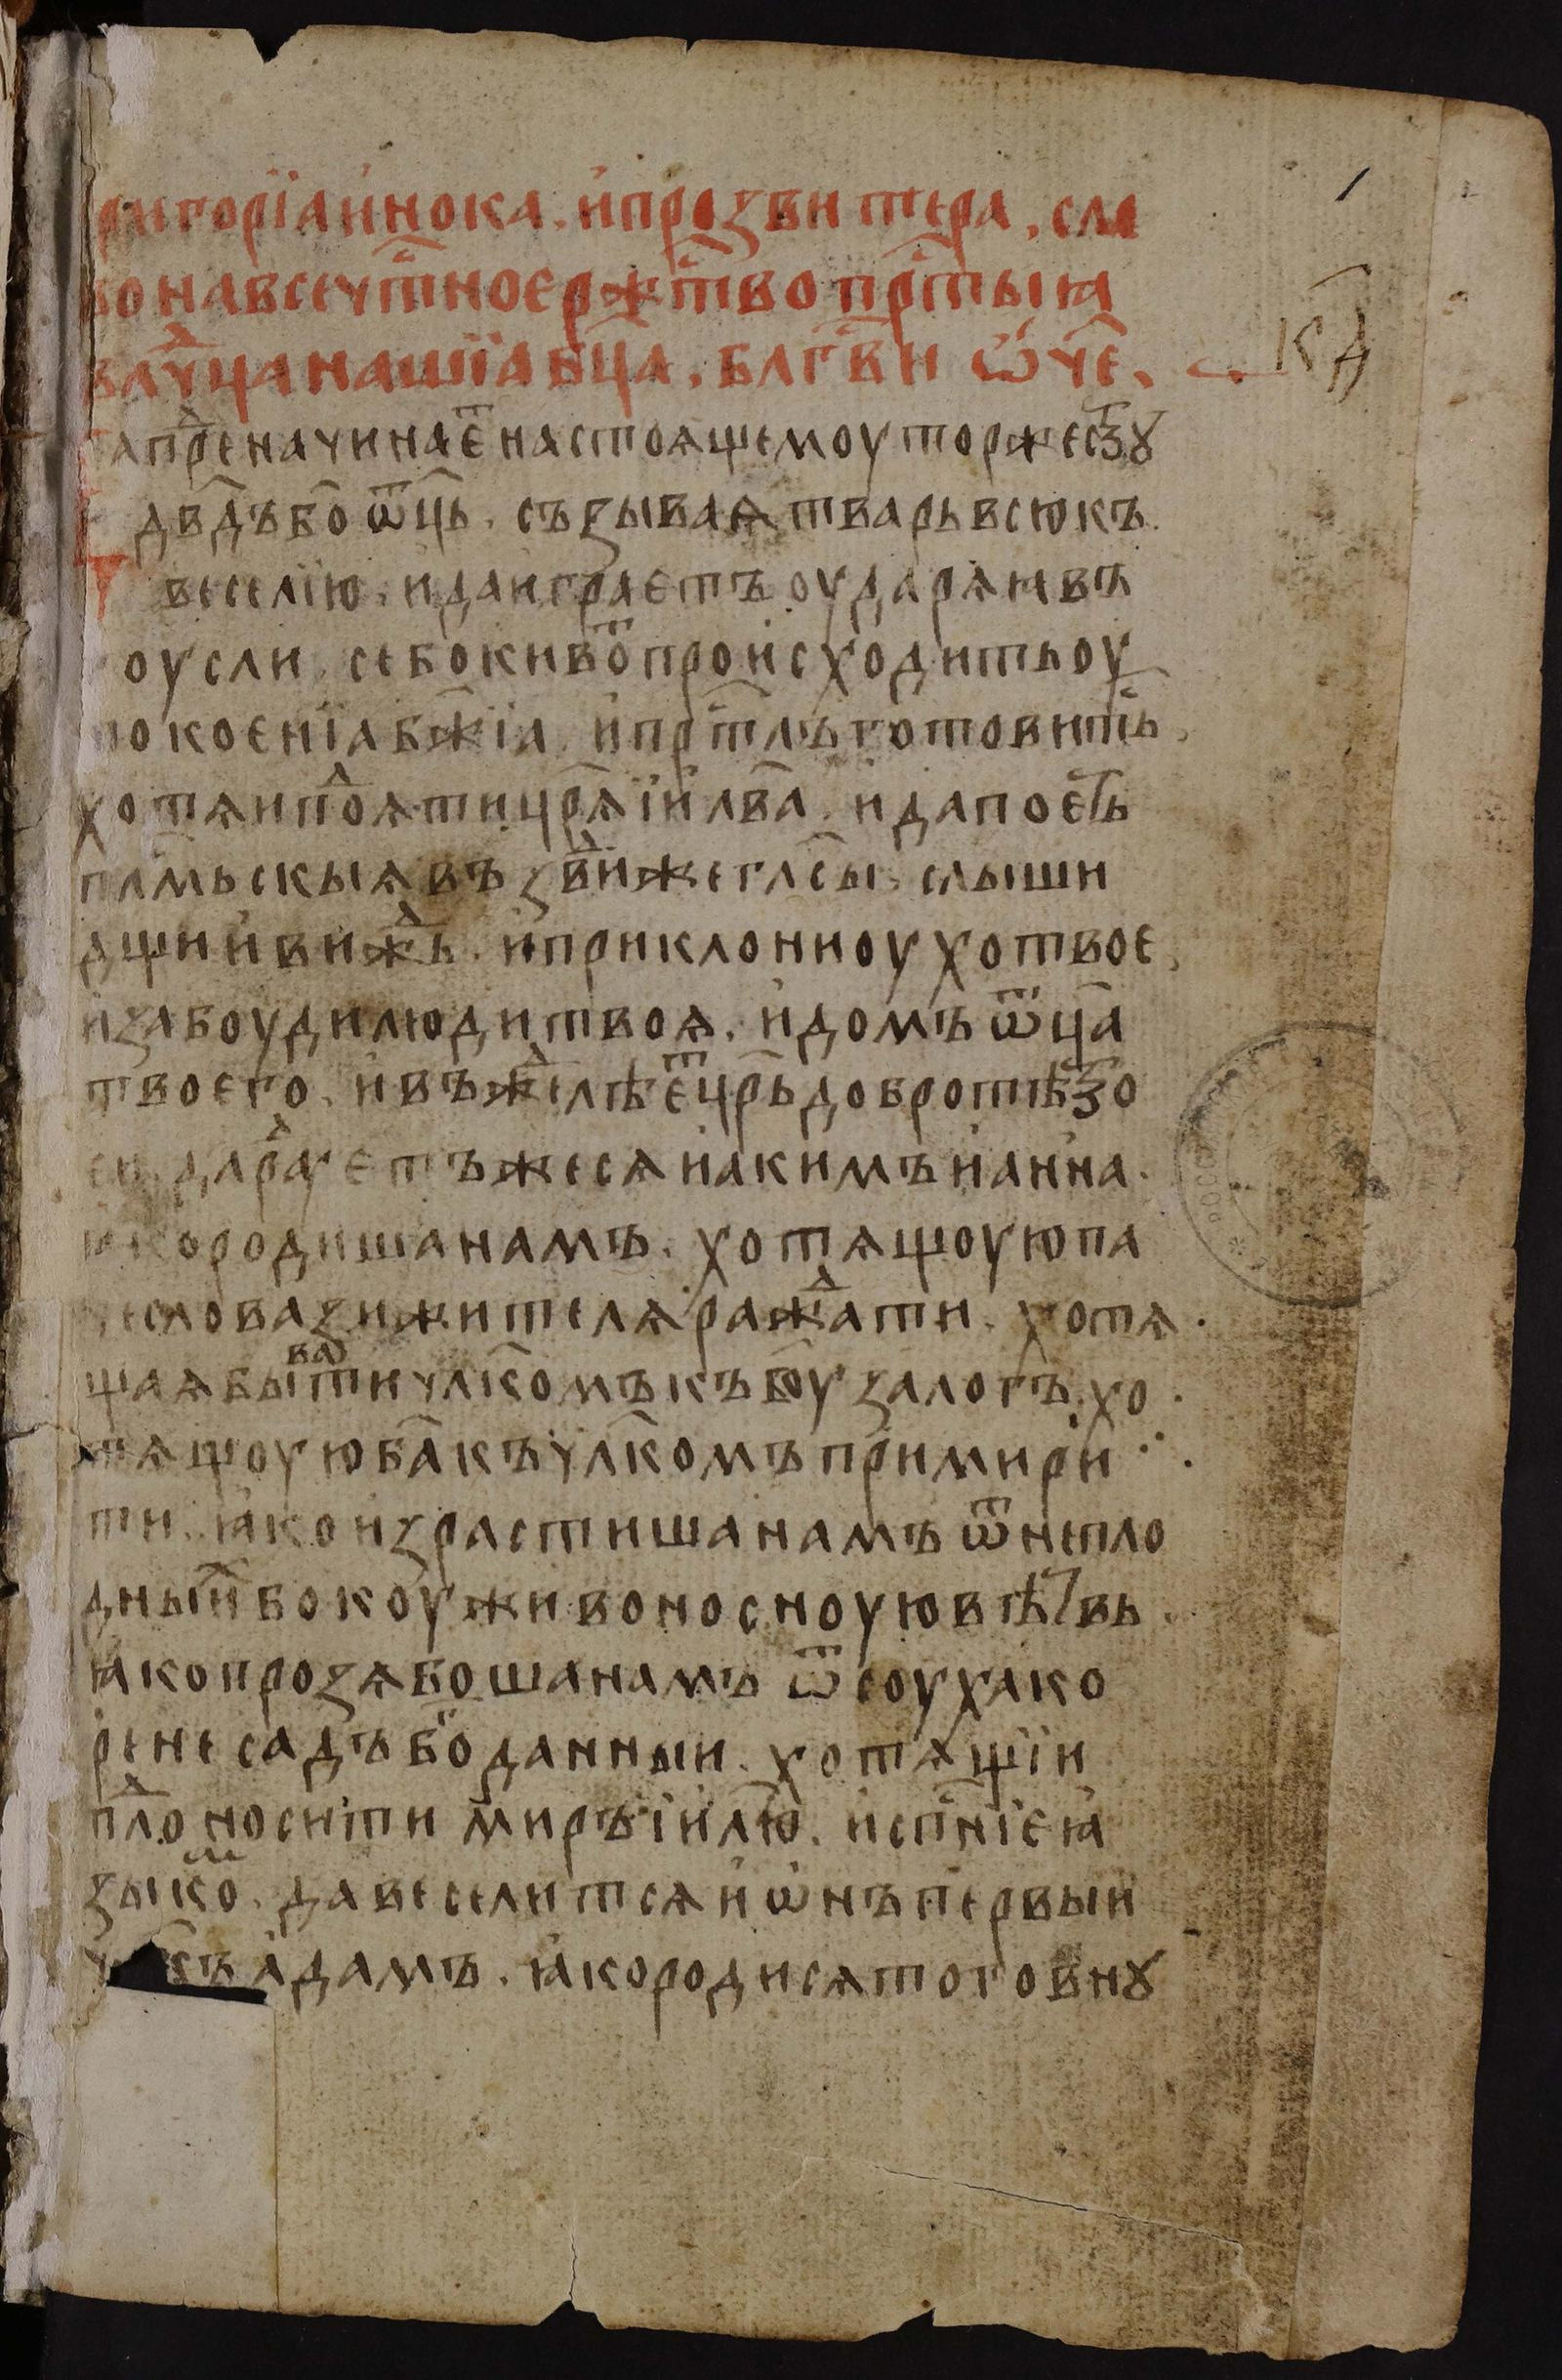 ригорїа инока. и прозвитера. сло
во на всечⷭ҇тное рж҃тво прⷭ҇тыꙗ
влⷣчца нашїа бц҃а. блгⷭ҇ви ѿч҃е.
кд҃
преⷣначинаеⷮ настоѧщемоу торжестꙋ
дв҃дъ бо҃ѿць. съзываѧ тварь всю къ
веселїю. и да играетъ оударѧꙗ въ
гоусли. се бо кивоⷮ происходить оу
покоенїа бж҃їа. и прⷭ҇тлъ готовитьⷭ҇.
хотѧи поⷣѧти цр҃ѧ їил҃ва. и да поеть
пл҃мьскыѧ въздвижегл҃сы. слыши
дщи и вижⷣь. и приклонн оухо твое.
и забоуди люди твоѧ. и домъ ѿц҃а
твоего. и въжⷣелѣеⷮ цр҃ь добротѣ тво
еи. дараⷣуетъжесѧ иакимъ и анна.
ꙗко родиша намъ. хотѧщоую па
че слова зижителѧ ражⷣати. хотѧ
щаѧ быⷭ҇ти чл҃комъ къ бо҃у залогъ. хо
тѧщоую ба҃ къ чл҃комъ примири
ти. ꙗко израстиша намъ ѿ непло
дныи бокоу живоносноую вѣтвь.
ꙗко прозѧбоша намъ ѿ соуха ко
рене садъ бо҃данныи. хотѧщїи
плоⷣ носити миръ їил҃ю. и сп҃нїе ꙗ
зыкоⷨ. да веселитсѧ и ѡнъ первыи
адамъ. ꙗко родисѧ того внꙋ